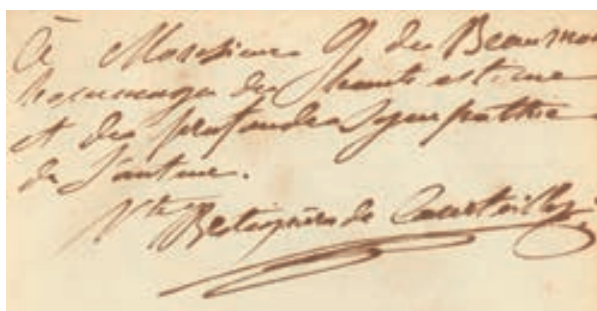 À Monsieur G. de Beaumon
hommage de haute estime
et de profonde Sympathie
de l'auteur.
Vte de Courteilles